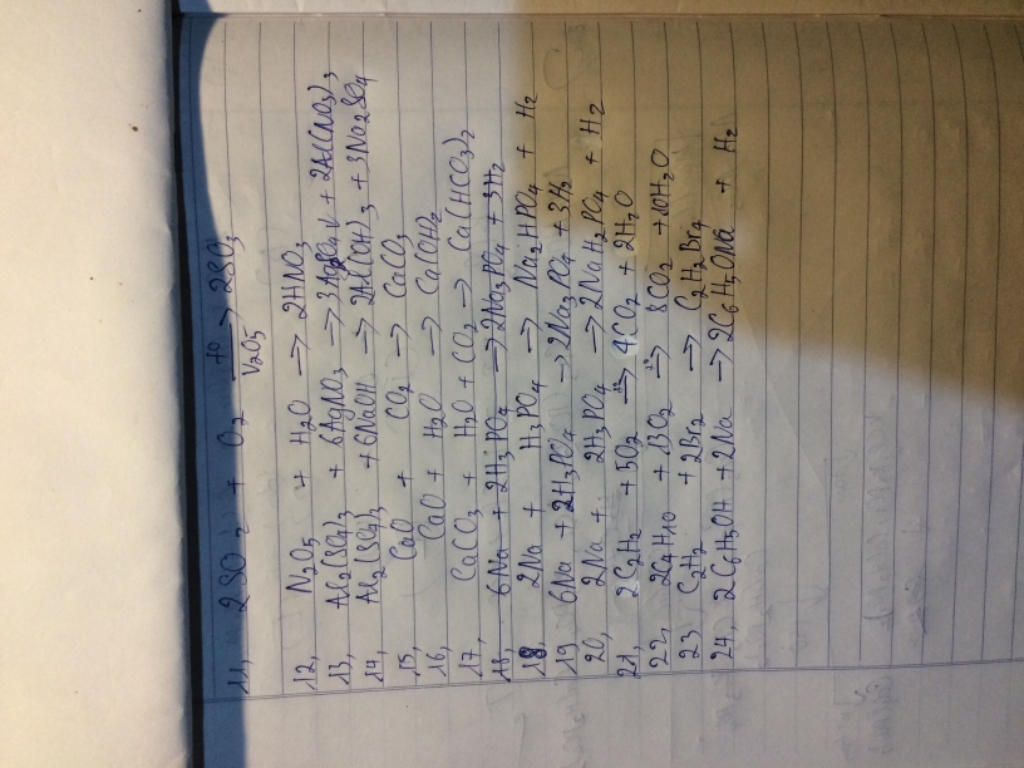 11, 2SO2 + O2 t° → 2SO3
V2O5
12, N2O5 + H2O → 2HNO3
13, Al2(SO4)3 + 6AgNO3 → 3Ag2SO4↓ + 2Al(NO3)3
14, Al2(SO4)3 + 6NaOH → 2Al(OH)3 + 3Na2SO4
15, CaO + CO2 → CaCO3
16, CaO + H2O → Ca(OH)2
17, CaCO3 + H2O + CO2 → Ca(HCO3)2
18, 6Na + 2H3PO4 → 2Na3PO4 + 3H2
18, 2Na + H3PO4 → Na2HPO4 + H2
19, 6Na + 2H3PO4 → 2Na3PO4 + 3H2
20, 2Na + 2H3PO4 → 2NaH2PO4 + H2
21, 2C2H2 + 5O2 t° → 4CO2 + 2H2O
22, 2C4H10 + 13O2 t° → 8CO2 + 10H2O
23 C2H2 + 2Br2 → C2H2Br4
24, 2C6H5OH + 2Na → 2C6H5ONa + H2